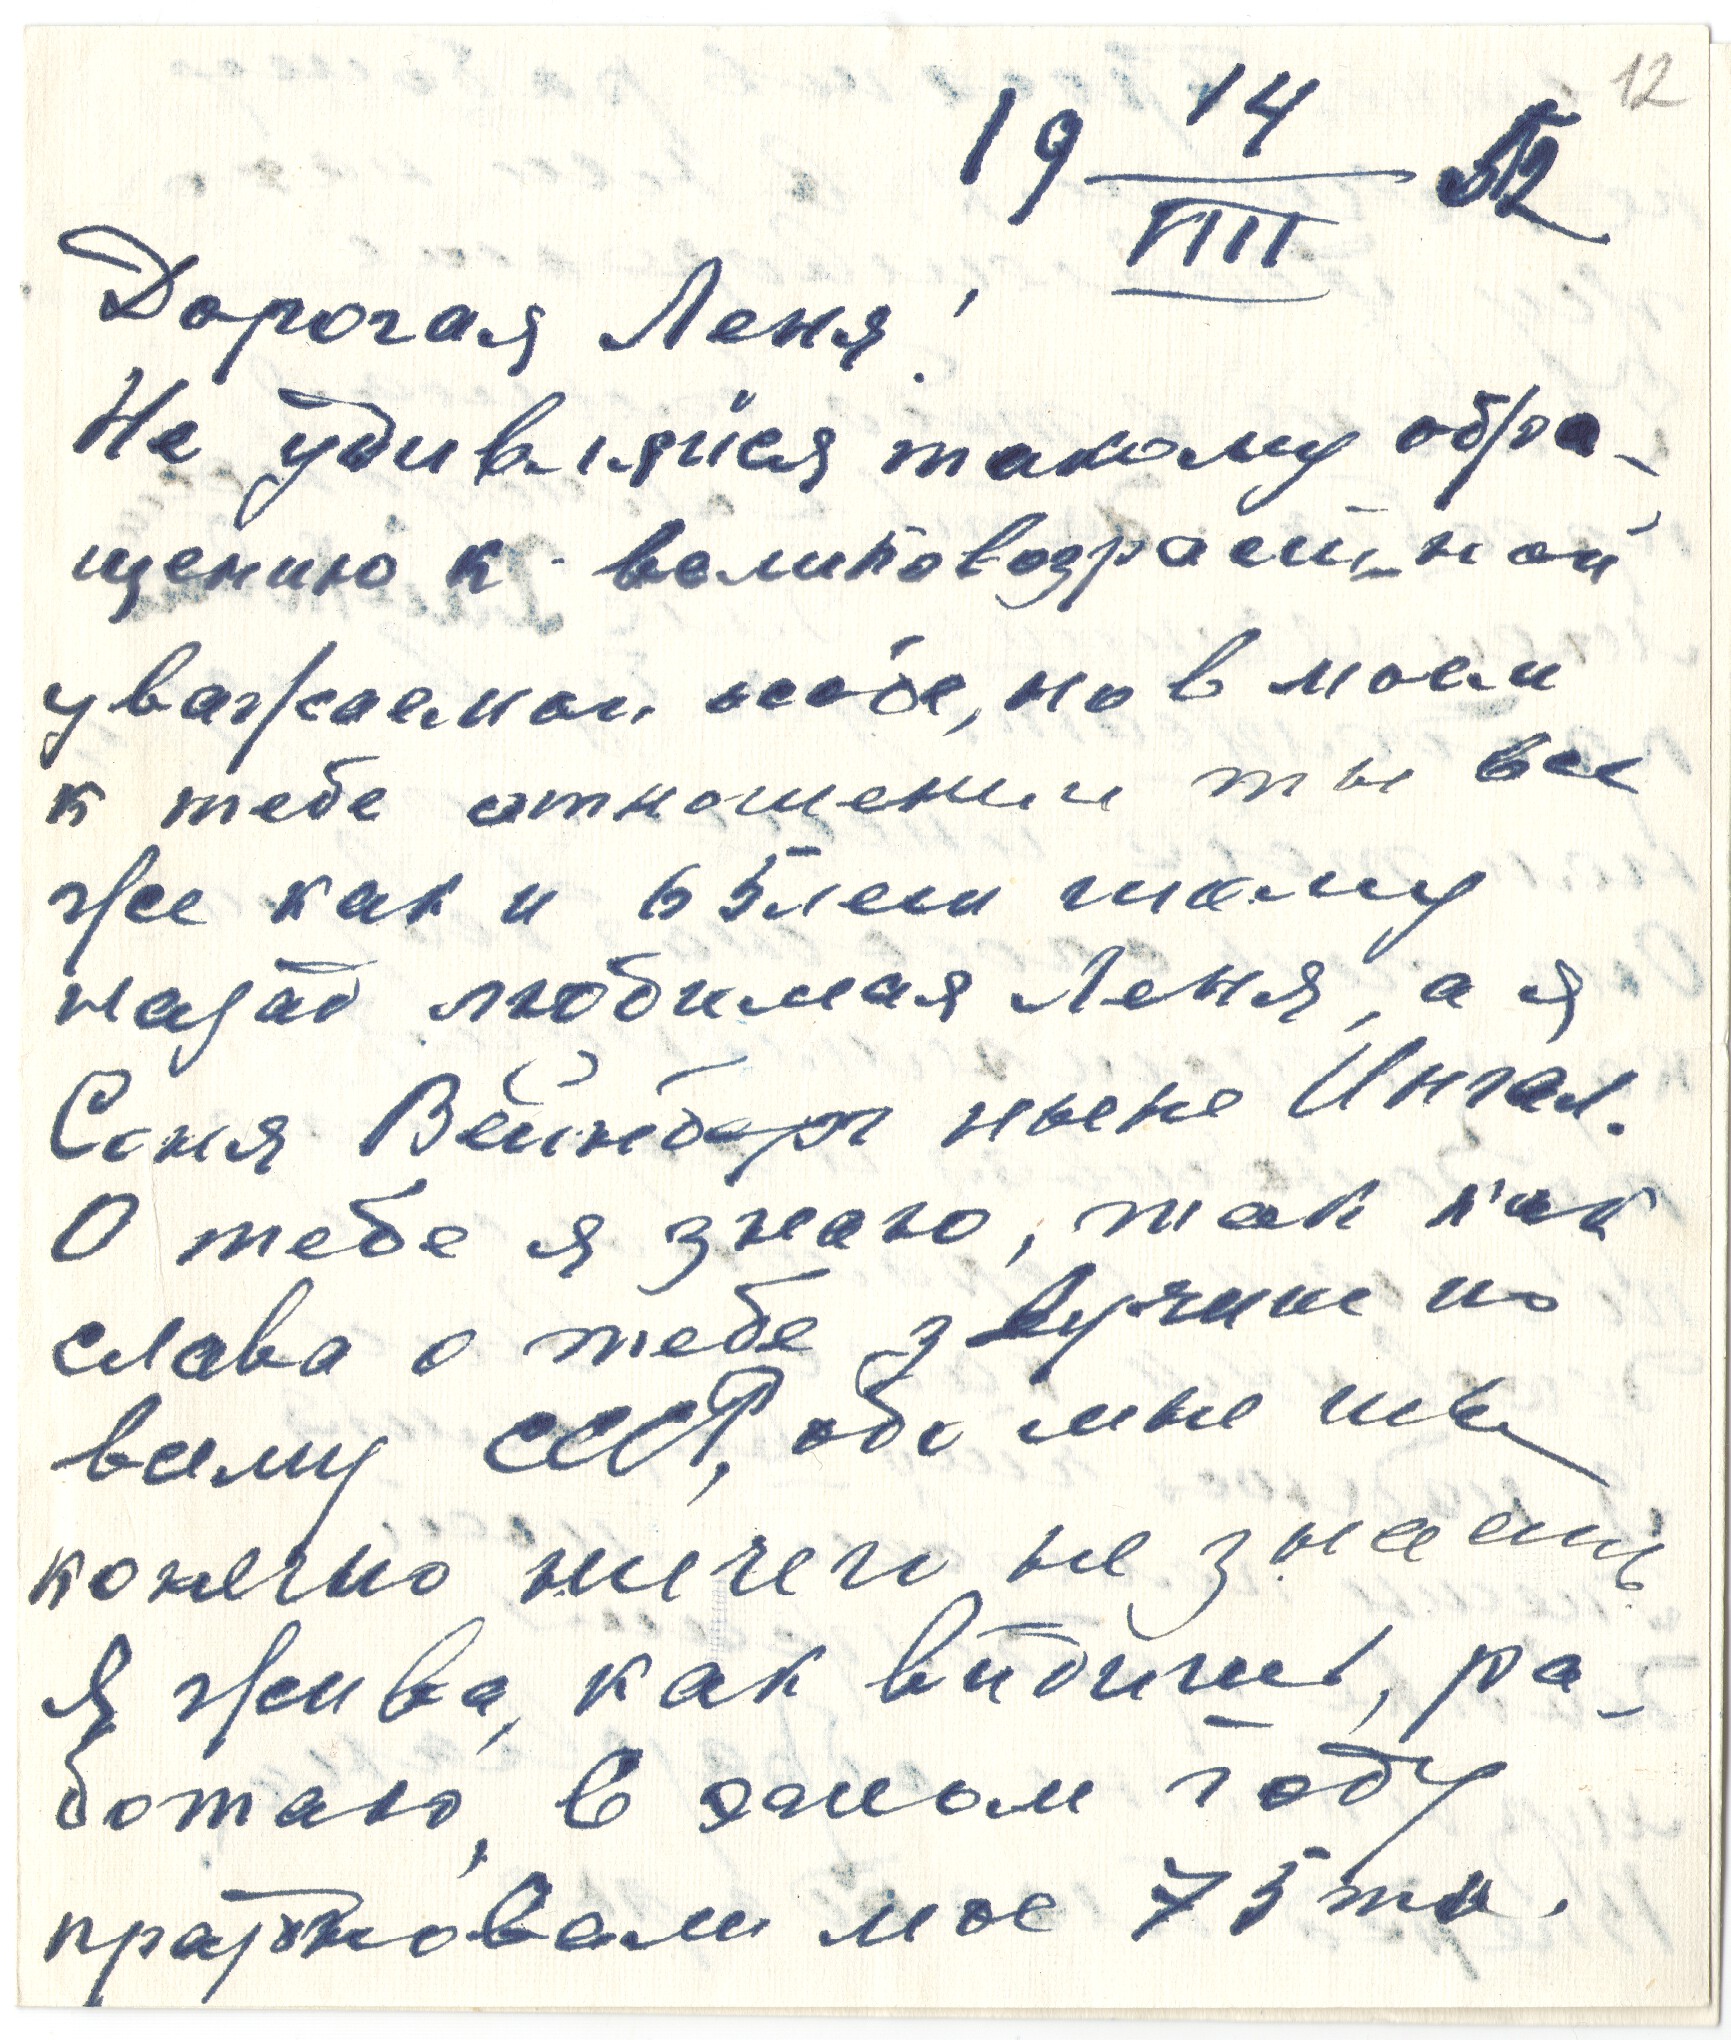 12
19 14/VIII 52
Дорогая Леня!
Не удивляйся такому обра-
щению к великовозрастной
уважаемой особе, но в моем
к тебе отношении ты все
же как и 65 лет тому
назад любимая Леня, а я
Соня Вейнберг ныне Ингал.
О тебе я знаю, так как
слава о тебе звучит по
всему СССР, обо мне ты
конечно ничего не знаешь
Я жива, как видишь, ра-
ботаю, в этом году
праздновали мое 75 ти.